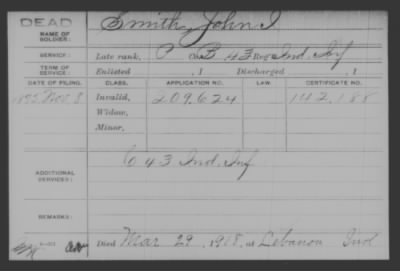 DEAD
NAME OF SOLDIER: Smith, John I
SERVICE: Late rank, P Co. B 43 Reg Ind. Inf
TERM OF SERVICE: Enlisted , 1 Discharged , 1
DATE OF FILING. CLASS. APPLICATION NO. LAW. CERTIFICATE NO.
1875 Nov. 8 Invalid, 209.624 142.188
Widow,
Minor,
ADDITIONAL SERVICES: C 43 Ind. Inf
REMARKS:
Died Mar 29, 1918, at Lebanon Ind